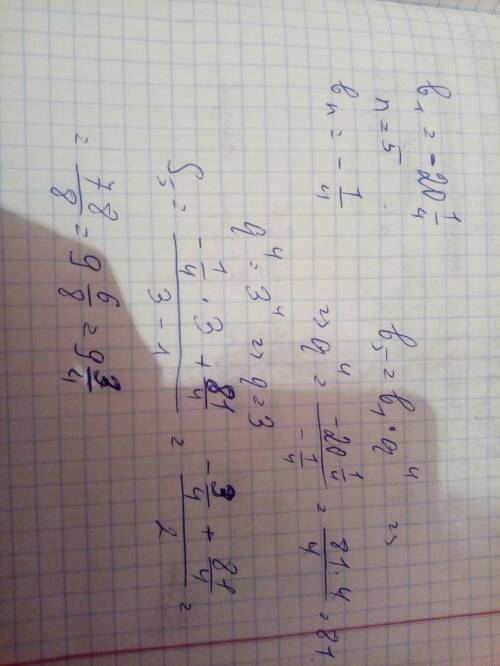 b₁ = -20 1/4
n = 5
bₙ = - 1/4
b₅ = b₁ · q⁴ ⇒
⇒ q⁴ = (-20 1/4)/(- 1/4) = (81·4)/4 = 81.
q⁴ = 3⁴ ⇒ q = 3
S₅ = (- 1/4 · 3 + 81/4)/(3 - 1) = (- 3/4 + 81/4)/2 =
= 78/8 = 9 6/8 = 9 3/4